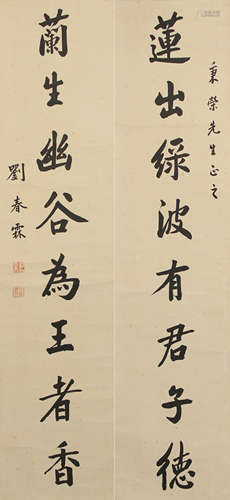 秉榮先生正之
蓮出綠波有君子德
蘭生幽谷為王者香
劉春霖